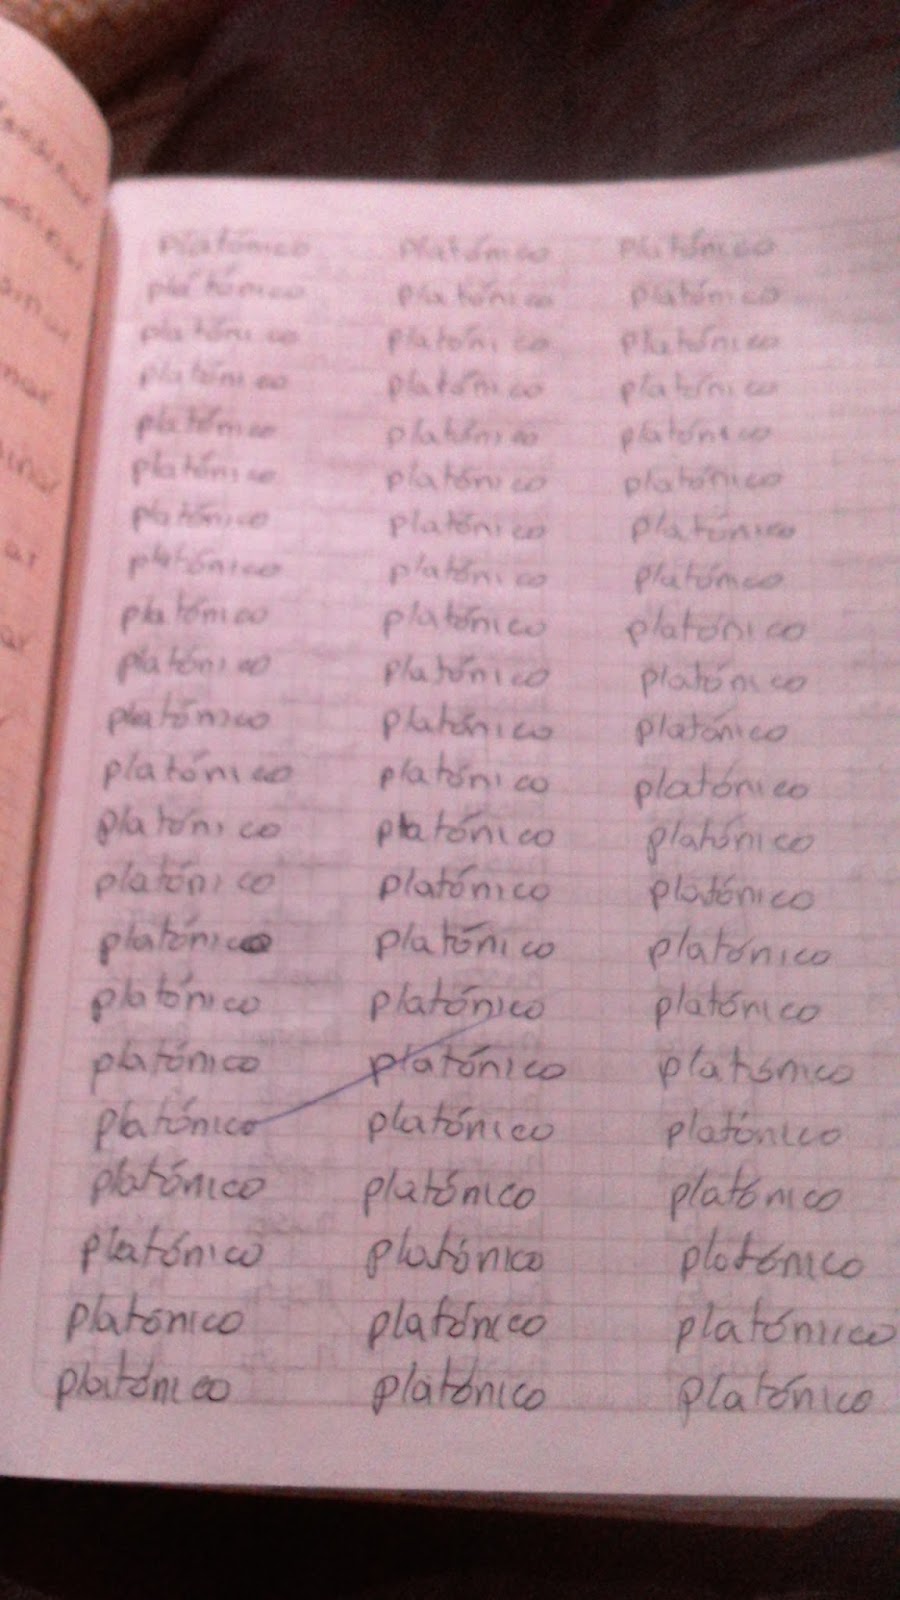 platónico platónico platónico
platónico platónico platónico
platónico platónico platónico
platónico platónico platónico
platónico platónico platónico
platónico platónico platónico
platónico platónico platónico
platónico platónico platónico
platónico platónico platónico
platónico platónico platónico
platónico platónico platónico
platónico platónico platónico
platónico platónico platónico
platónico platónico platónico
platónico platónico platónico
platónico platónico platónico
platónico platónico platónico
platónico platónico platónico
platónico platónico platónico
platónico platónico platónico
platónico platónico platónico
platónico platónico platónico